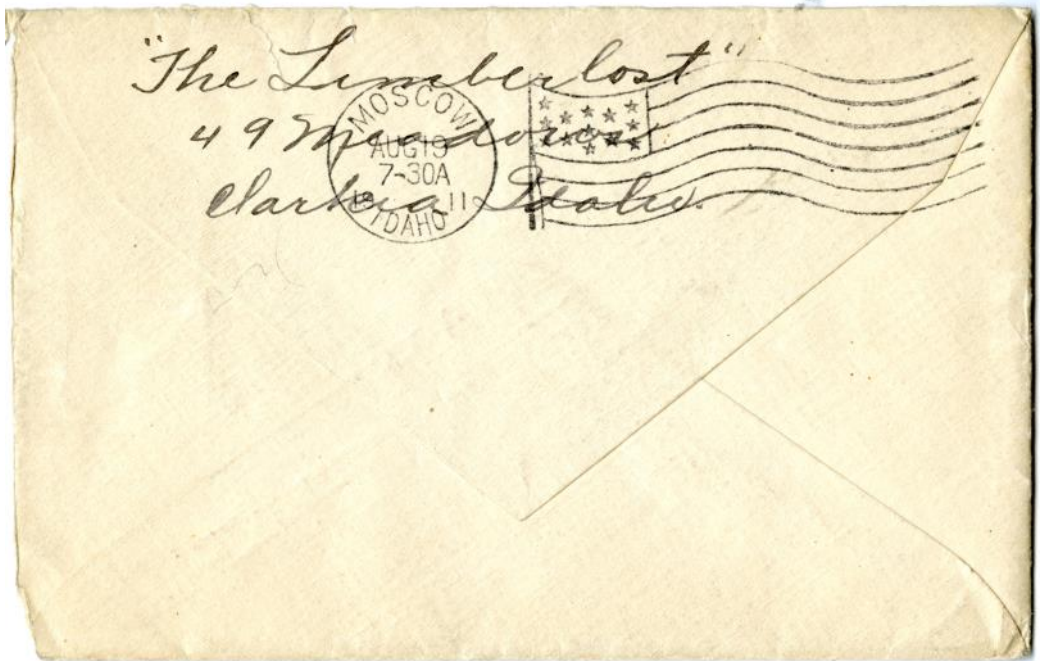 "The Limberlost"
49 Meadows
Clarkia Idaho.
MOSCOW
AUG 19
7-30A
1911
IDAHO